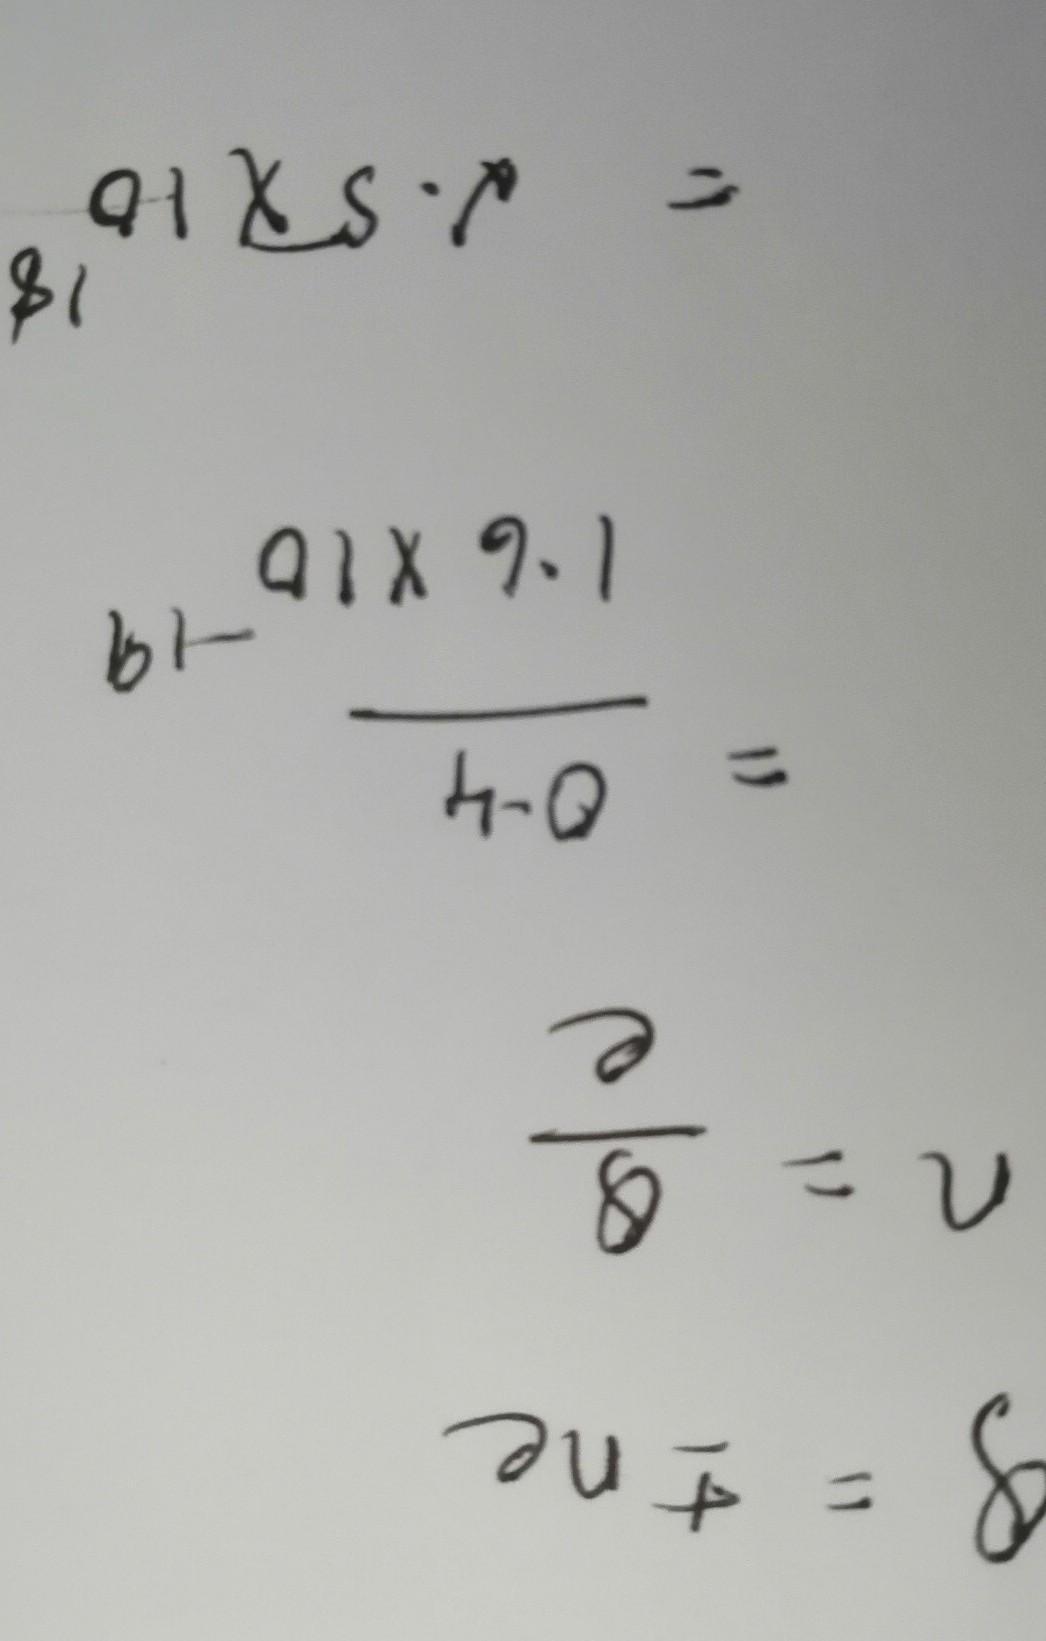 Q = ± ne
n = Q/e
= 0.4 / 1.6 × 10⁻¹⁹
= 2.5 × 10¹⁸